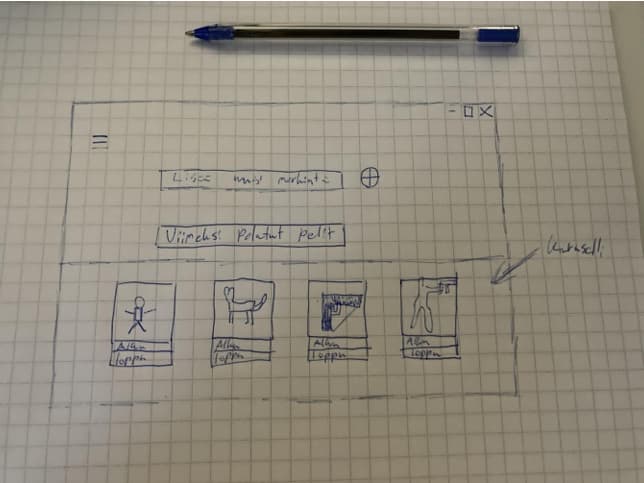 Lisää uusi merkintä
Viimeksi Pelatut Pelit
Karuselli
Alku Alku Alku Alku
loppu loppu loppu loppu